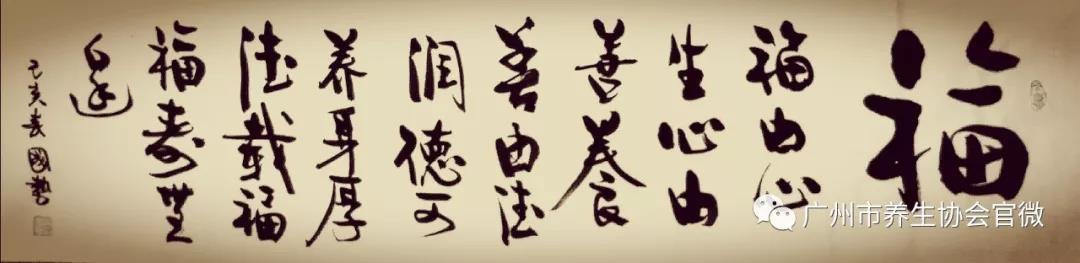 福
福由心
生心由
善養
善由德
润德可
养身厚
德載福
福寿無
邊
己亥春國
广州市养生协会官微